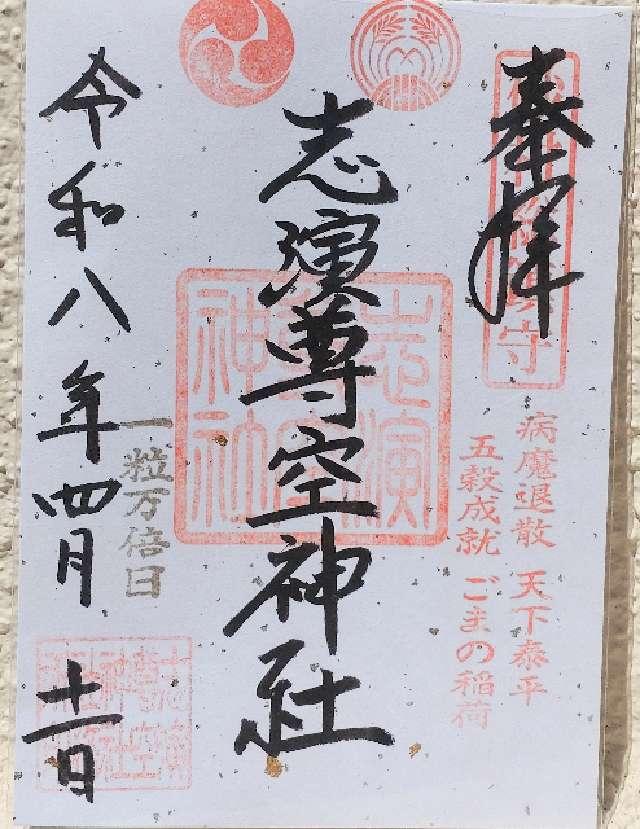 奉拝
病魔退散 天下泰平
五穀成就 ごまの稲荷
志演尊空神社
志演尊空神社
一粒万倍日
令和八年四月十一日